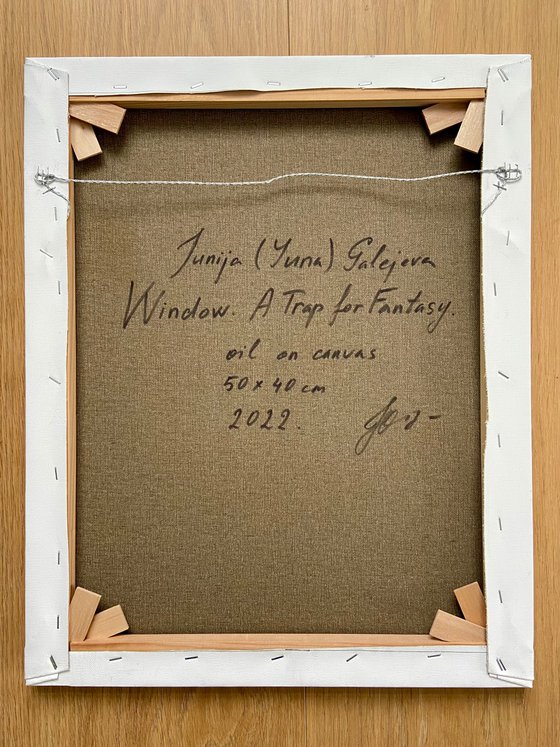 Junija (Yuna) Galejeva
Window. A Trap for Fantasy.
oil on canvas
50 x 40 cm
2022.